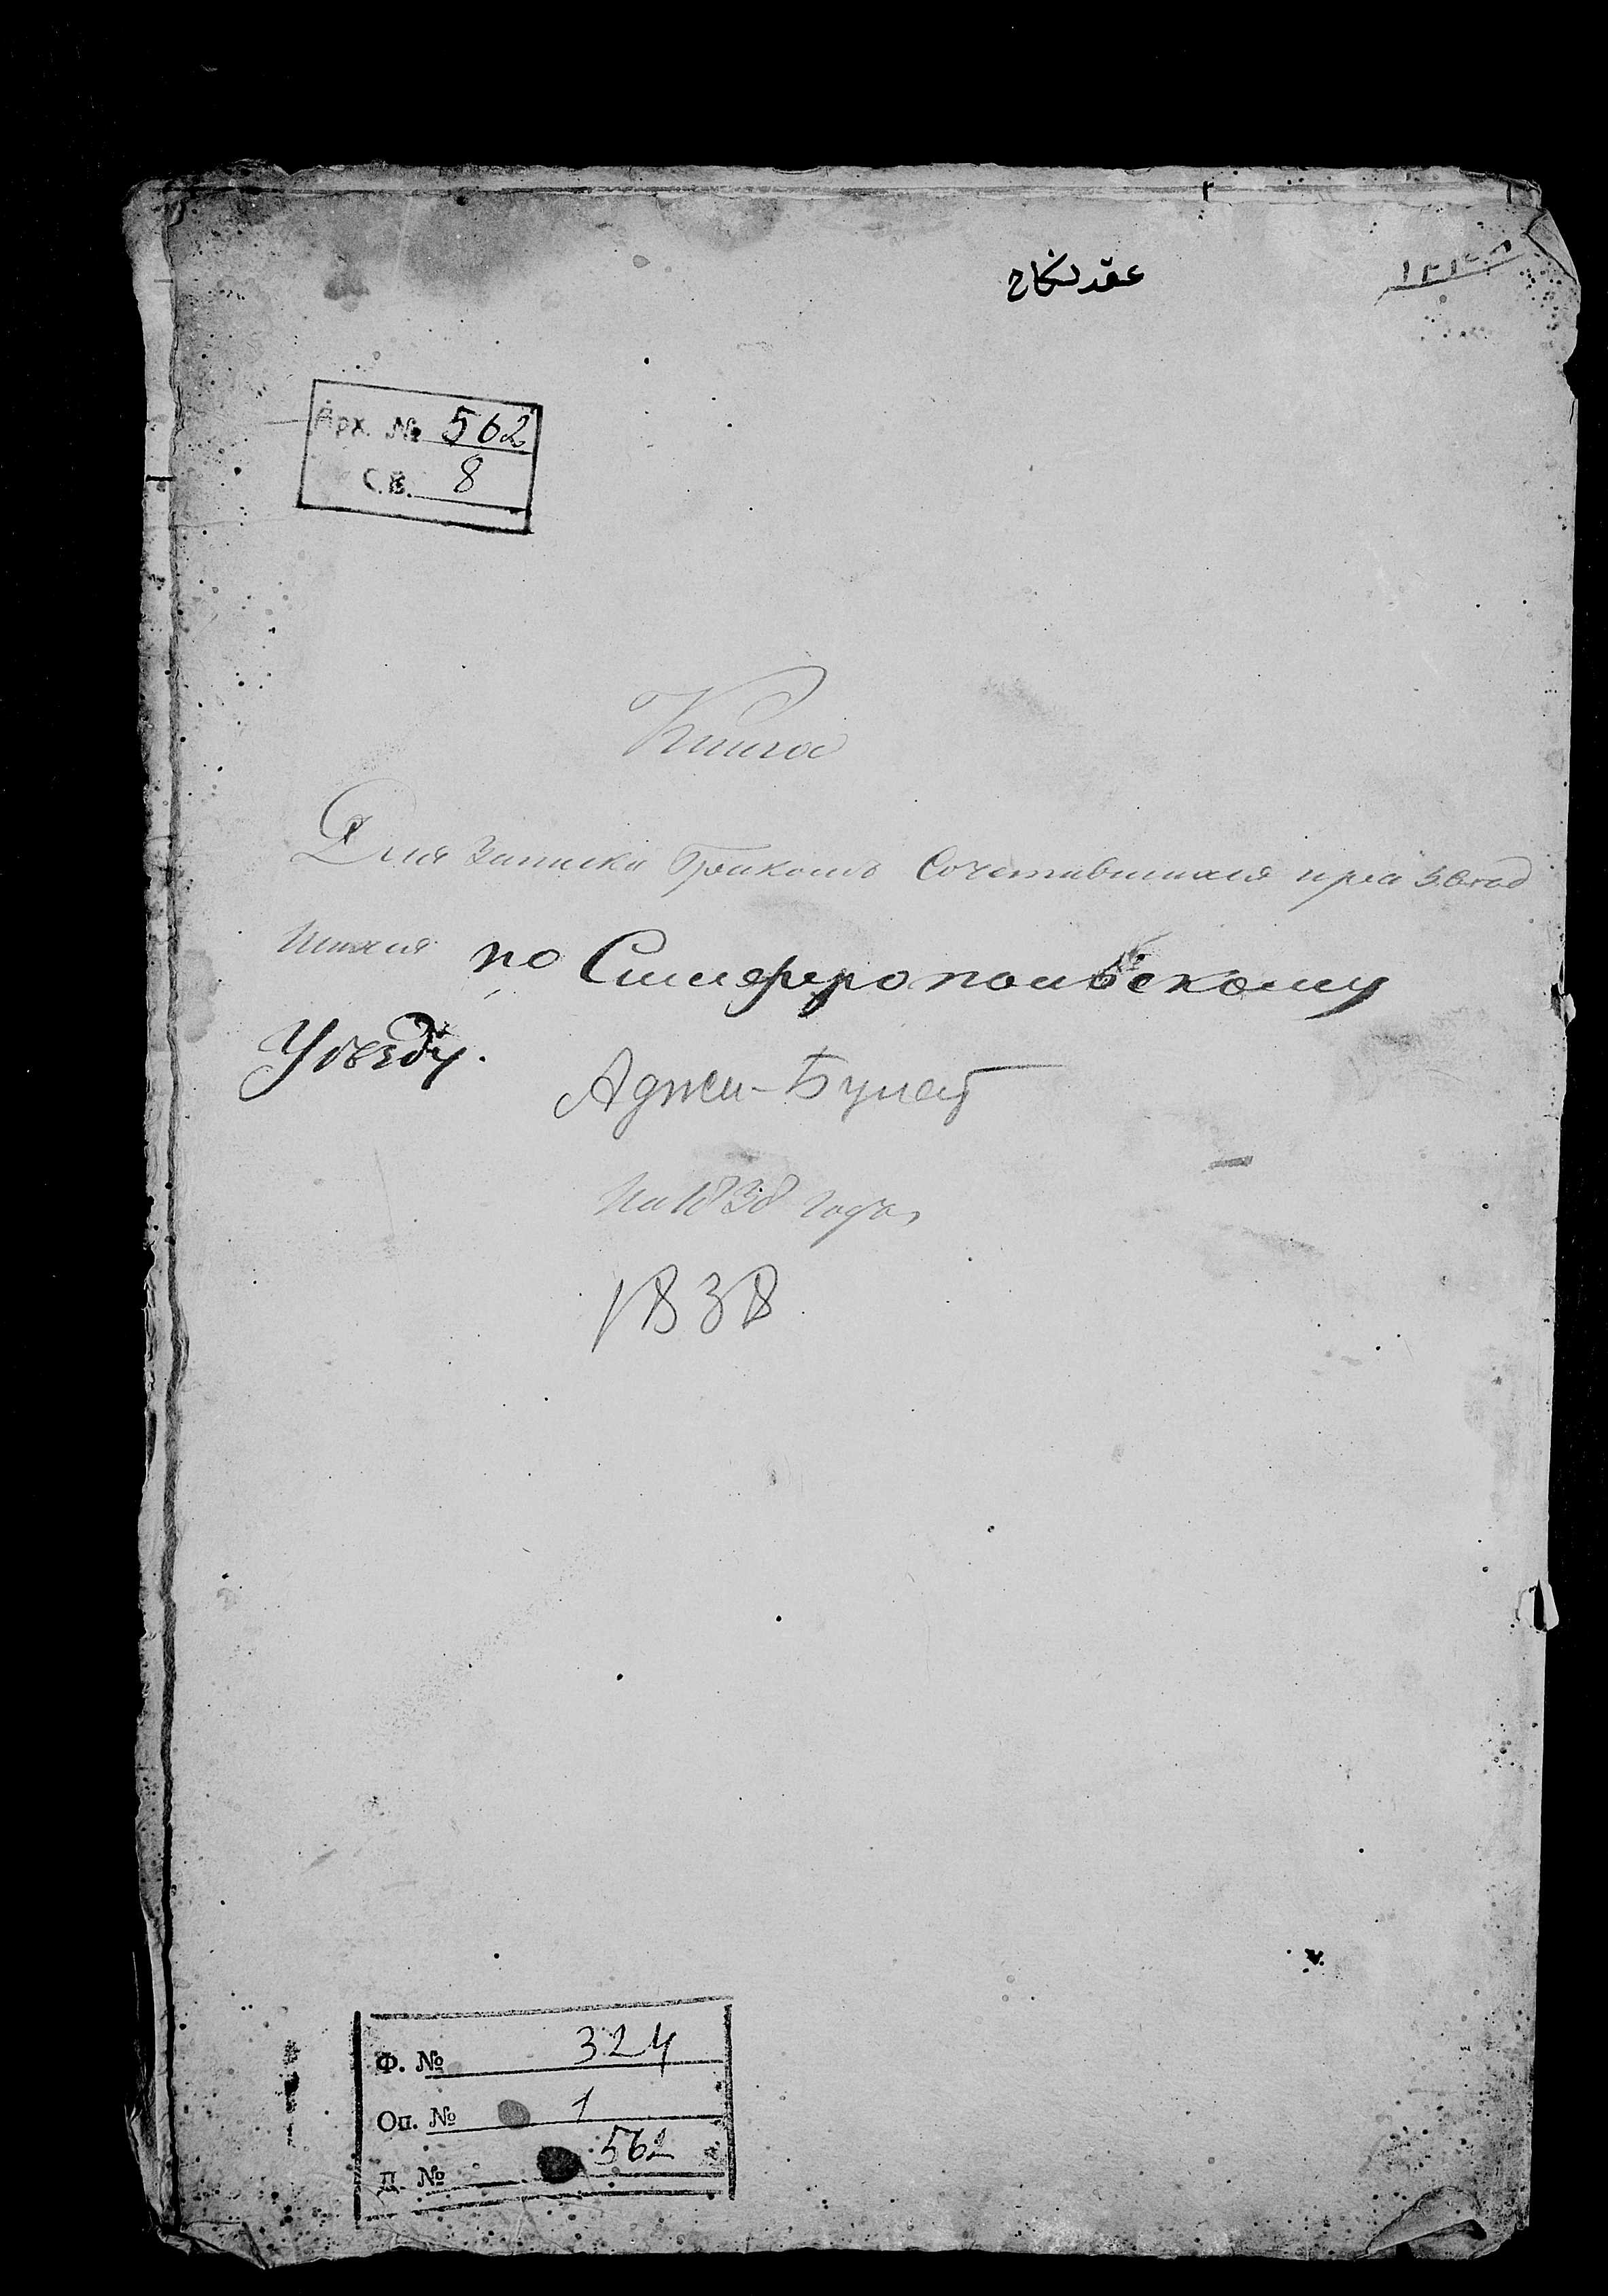 عقد نكاح
Арх. № 562
С.В. 8
Книга
Для записки бракомъ Сочетавшихся и развод
шихся по Симферопольскому
Уѣзду.
Аджи-Булат
На 1838 года,
1838
Ф. № 324
Оп. № 1
Д. № 562